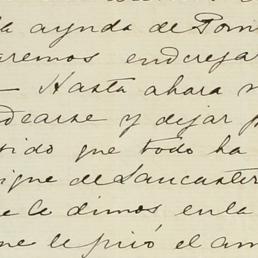 la ayuda de Pom
aremos enderejar
— Hasta ahora n
dearse y dejar p
tido que todo ha
igue de Lancaster
e le dimos en la
ne le picó el am